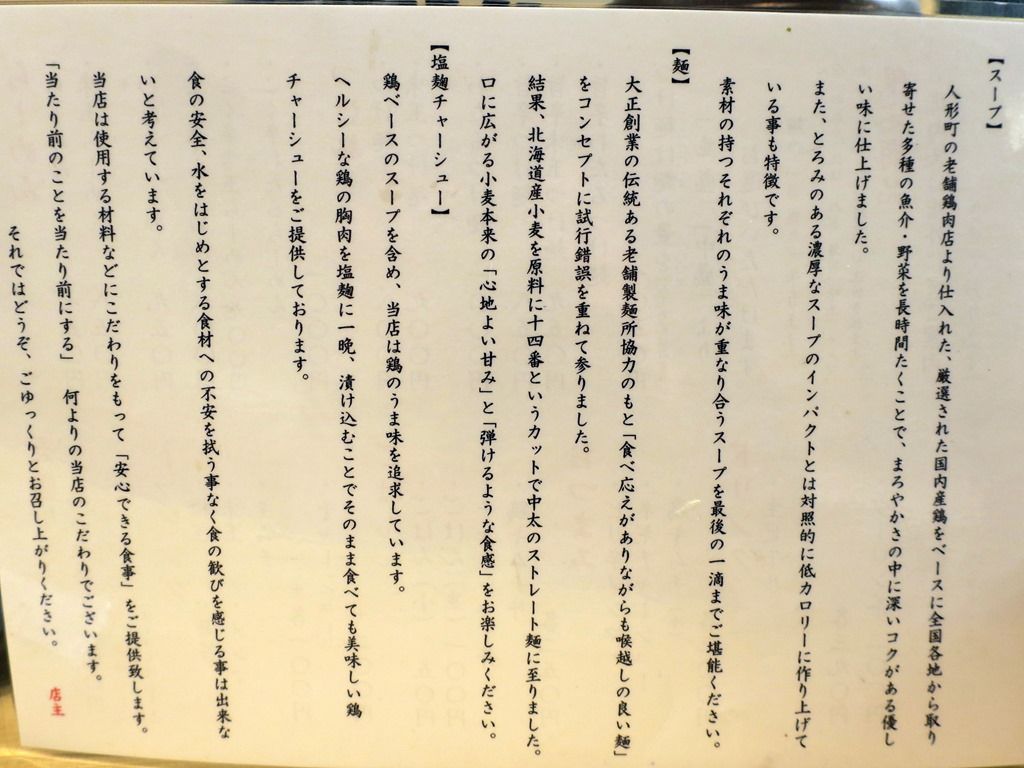 【スープ】
人形町の老舗鶏肉店より仕入れた、厳選された国内産鶏をベースに全国各地から取り
寄せた多種の魚介・野菜を長時間たくことで、まろやかさの中に深いコクがある優し
い味に仕上げました。
また、とろみのある濃厚なスープのインパクトとは対照的に低カロリーに作り上げて
いる事も特徴です。
素材の持つそれぞれのうま味が重なり合うスープを最後の一滴までご堪能ください。
【麺】
大正創業の伝統ある老舗製麺所協力のもと「食べ応えがありながらも喉越しの良い麺」
をコンセプトに試行錯誤を重ねて参りました。
結果、北海道産小麦を原料に十四番というカットで中太のストレート麺に至りました。
口に広がる小麦本来の「心地よい甘み」と「弾けるような食感」をお楽しみください。
【塩麹チャーシュー】
鶏ベースのスープを含め、当店は鶏のうま味を追求しています。
ヘルシーな鶏の胸肉を塩麹に一晩、漬け込むことでそのまま食べても美味しい鶏
チャーシューをご提供しております。
食の安全、水をはじめとする食材への不安を拭う事なく食の歓びを感じる事は出来な
いと考えています。
当店は使用する材料などにこだわりをもって「安心できる食事」をご提供致します。
「当たり前のことを当たり前にする」 何よりの当店のこだわりでございます。
それではどうぞ、ごゆっくりとお召し上がりください。
店主